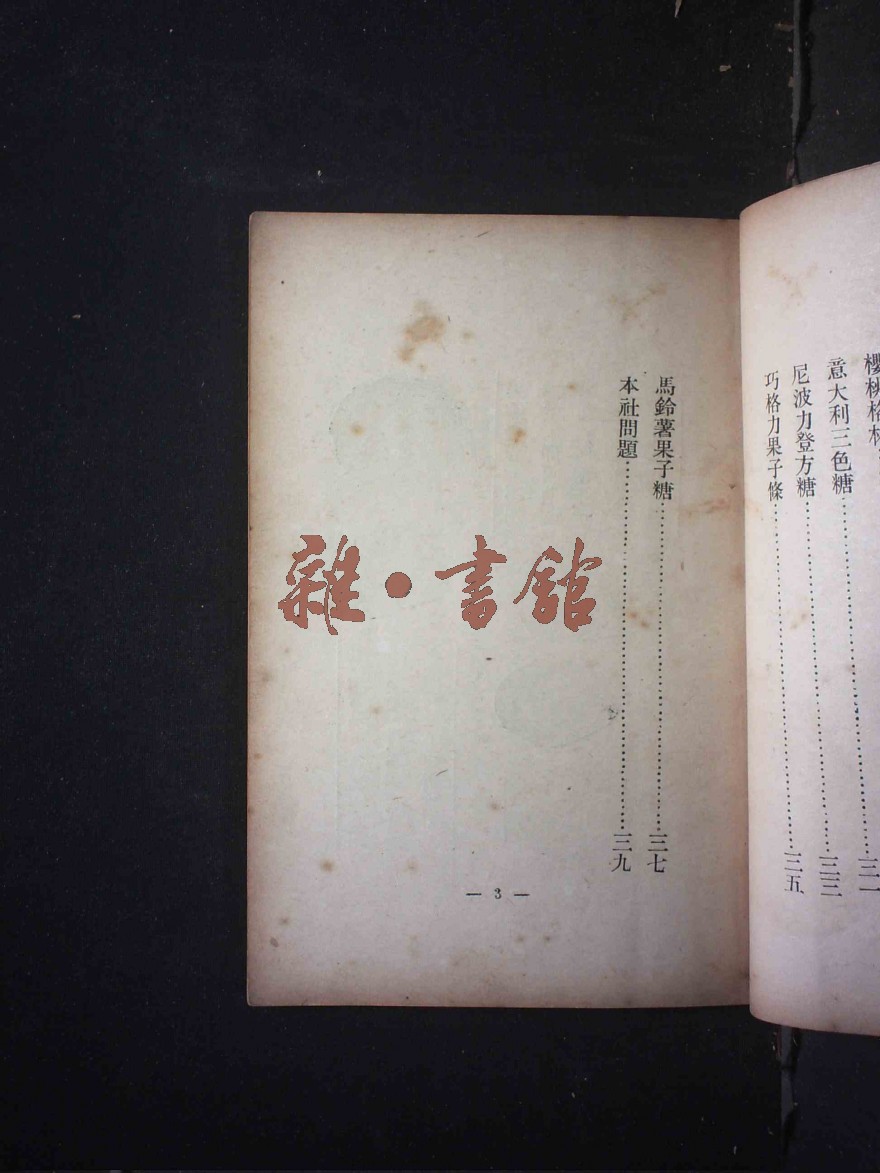 意大利三色糖……三三
尼波力登方糖……三五
巧格力果子條
馬鈴薯果子糖……三七
本社問題……三九
— 3 —
雜·書館